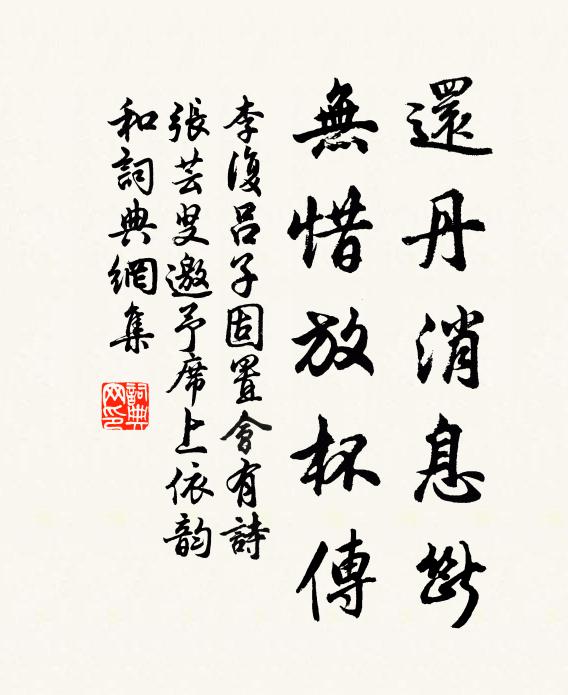 還丹消息斷
無惜放杯傳
李復呂子固置會有詩
張芸叟邀予席上依韵
和詞典網集
詞典
网印